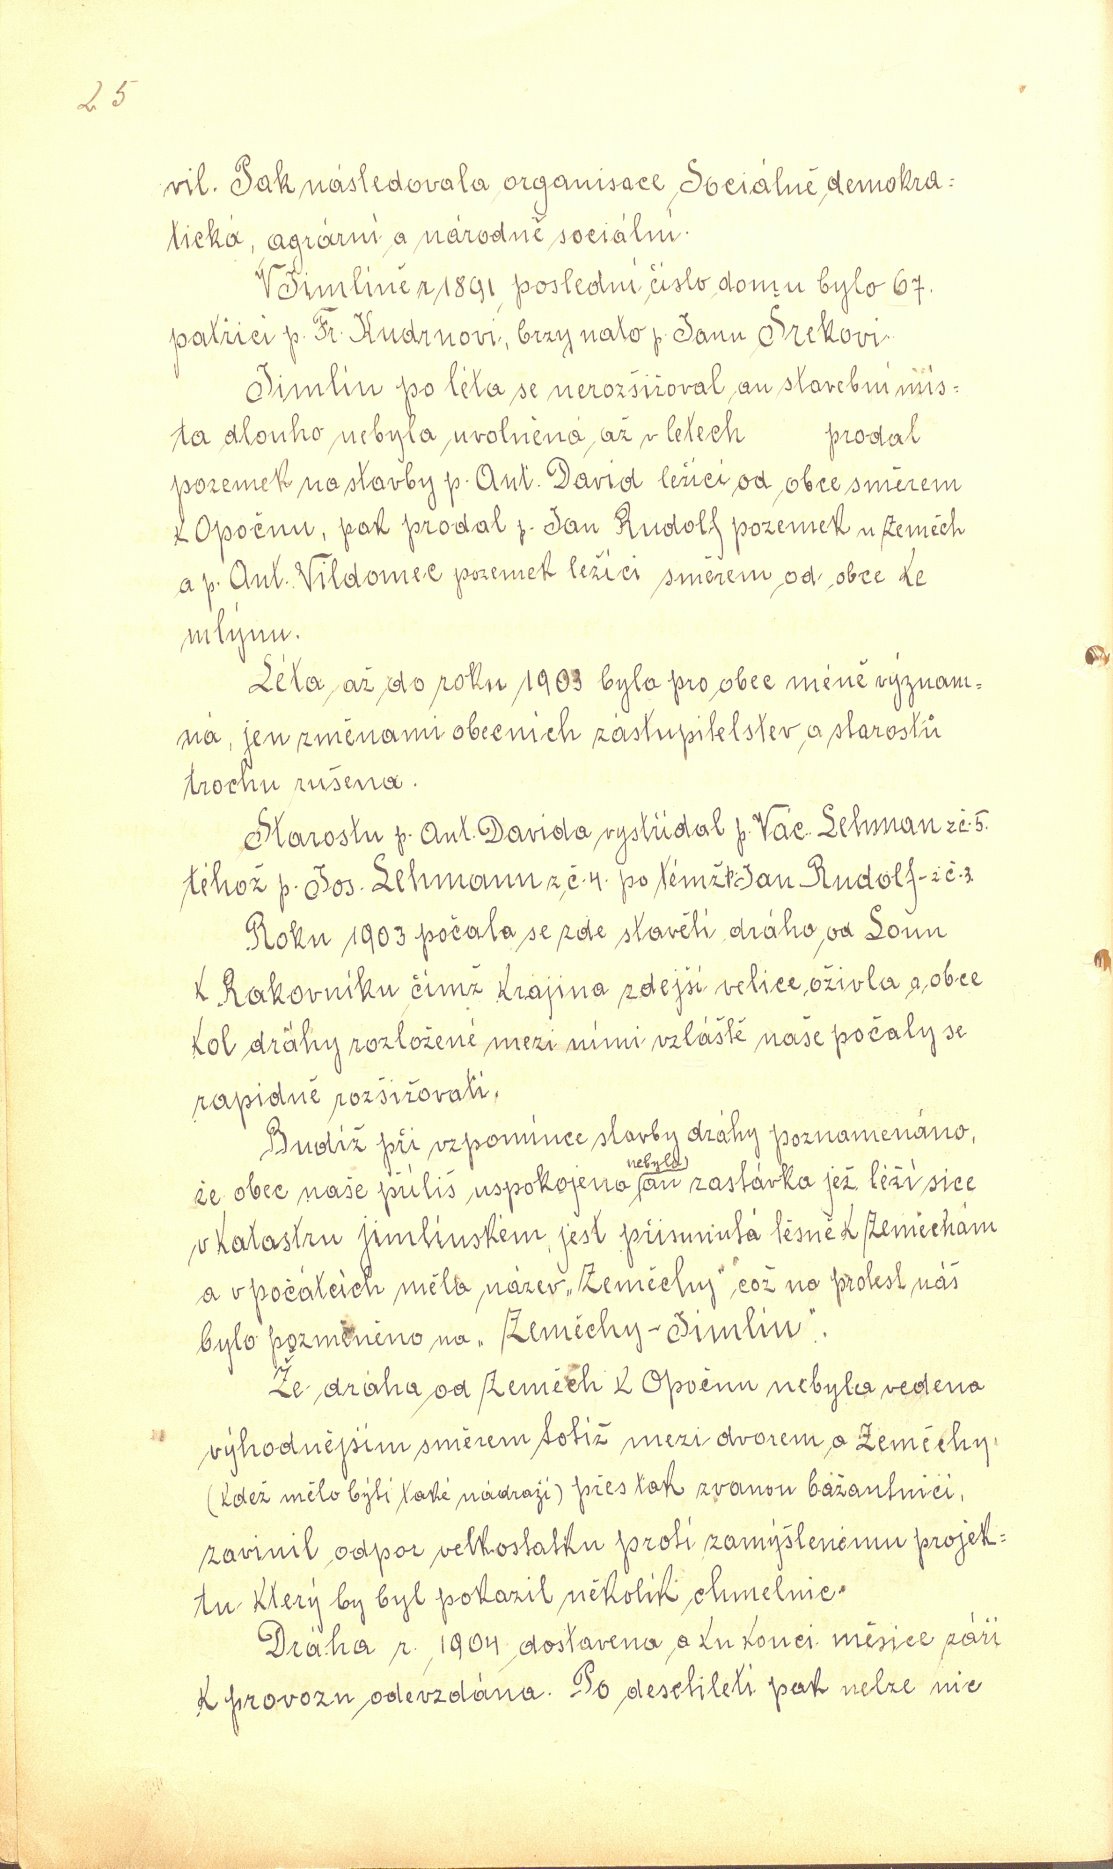 25
vil. Pak následovala organisace Sociálně demokra=
tická, agrární a národně sociální.
V Jimlíně r. 1891 poslední číslo domu bylo 67.
patřící p. Fr. Kudrnovi, brzy nato p. Janu Srekovi
Jimlín po léta se nerozšiřoval an stavební mís=
ta dlouho nebyla uvolněná, až v letech prodal
pozemek na stavby p. Ant. David ležící od obce směrem
k Opočnu, pak prodal p. Jan Rudolf pozemek u Zeměch
a p. Ant. Vildomec pozemek ležící směrem od obce ke
mlýnu.
Léta až do roku 1903 byla pro obec méně význam=
ná, jen změnami obecních zastupitelstev a starostů
trochu rušena.
Starostu p. Ant. Davida vystřídal p. Vác. Lehman z č. 5.
téhož p. Jos. Lehmann z č. 4. po témž p. Jan Rudolf - z č. 3
Roku 1903 počala se zde stavěti dráha od Loun
k Rakovníku čímž krajina zdejší velice oživla a obce
kol dráhy rozložené mezi nimi vzláště naše počaly se
rapidně rozšiřovati.
Budiž při vzpomínce stavby dráhy poznamenáno,
nebyla
že obec naše příliš uspokojena an zastávka jež leží sice
v katastru jimlínském, jest přisunutá těsně k Zeměchám
a v počátcích měla název „Zeměchy" což na protest náš
bylo pozměněno na „Zeměchy - Jimlín".
Že dráha od Zeměch k Opočnu nebyla vedena
výhodnějším směrem totiž mezi dvorem a Zeměchy
(kdež mělo býti také nádraží) přes tak zvanou bážantnici,
zavinil odpor velkostatku proti zamýšlenému projek=
tu který by byl pokazil několik chmelnic.
Dráha r. 1904 dostavena a ku konci měsíce září
k provozu odevzdána. Po desetiletí pak nelze nic